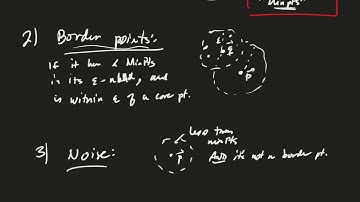 MinPts
2) Border points:
If it has < MinPts
in its ε-nbhd, and
is within ε of a core pt.
ε
q
p
3) Noise:
less than
minpts
p
AND it's not a border pt.